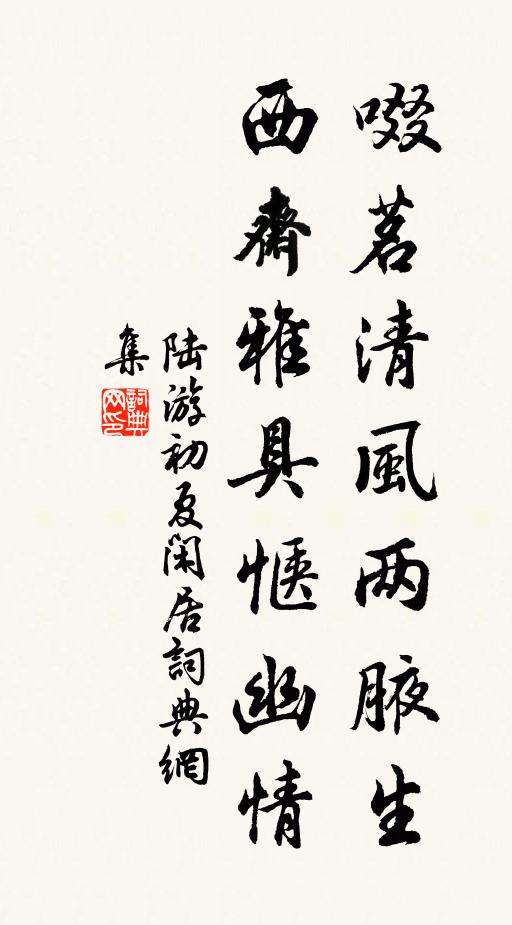 啜茗清風两腋生
西齋雅具惬幽情
陆游初夏闲居詞典網
集
詞典
网印